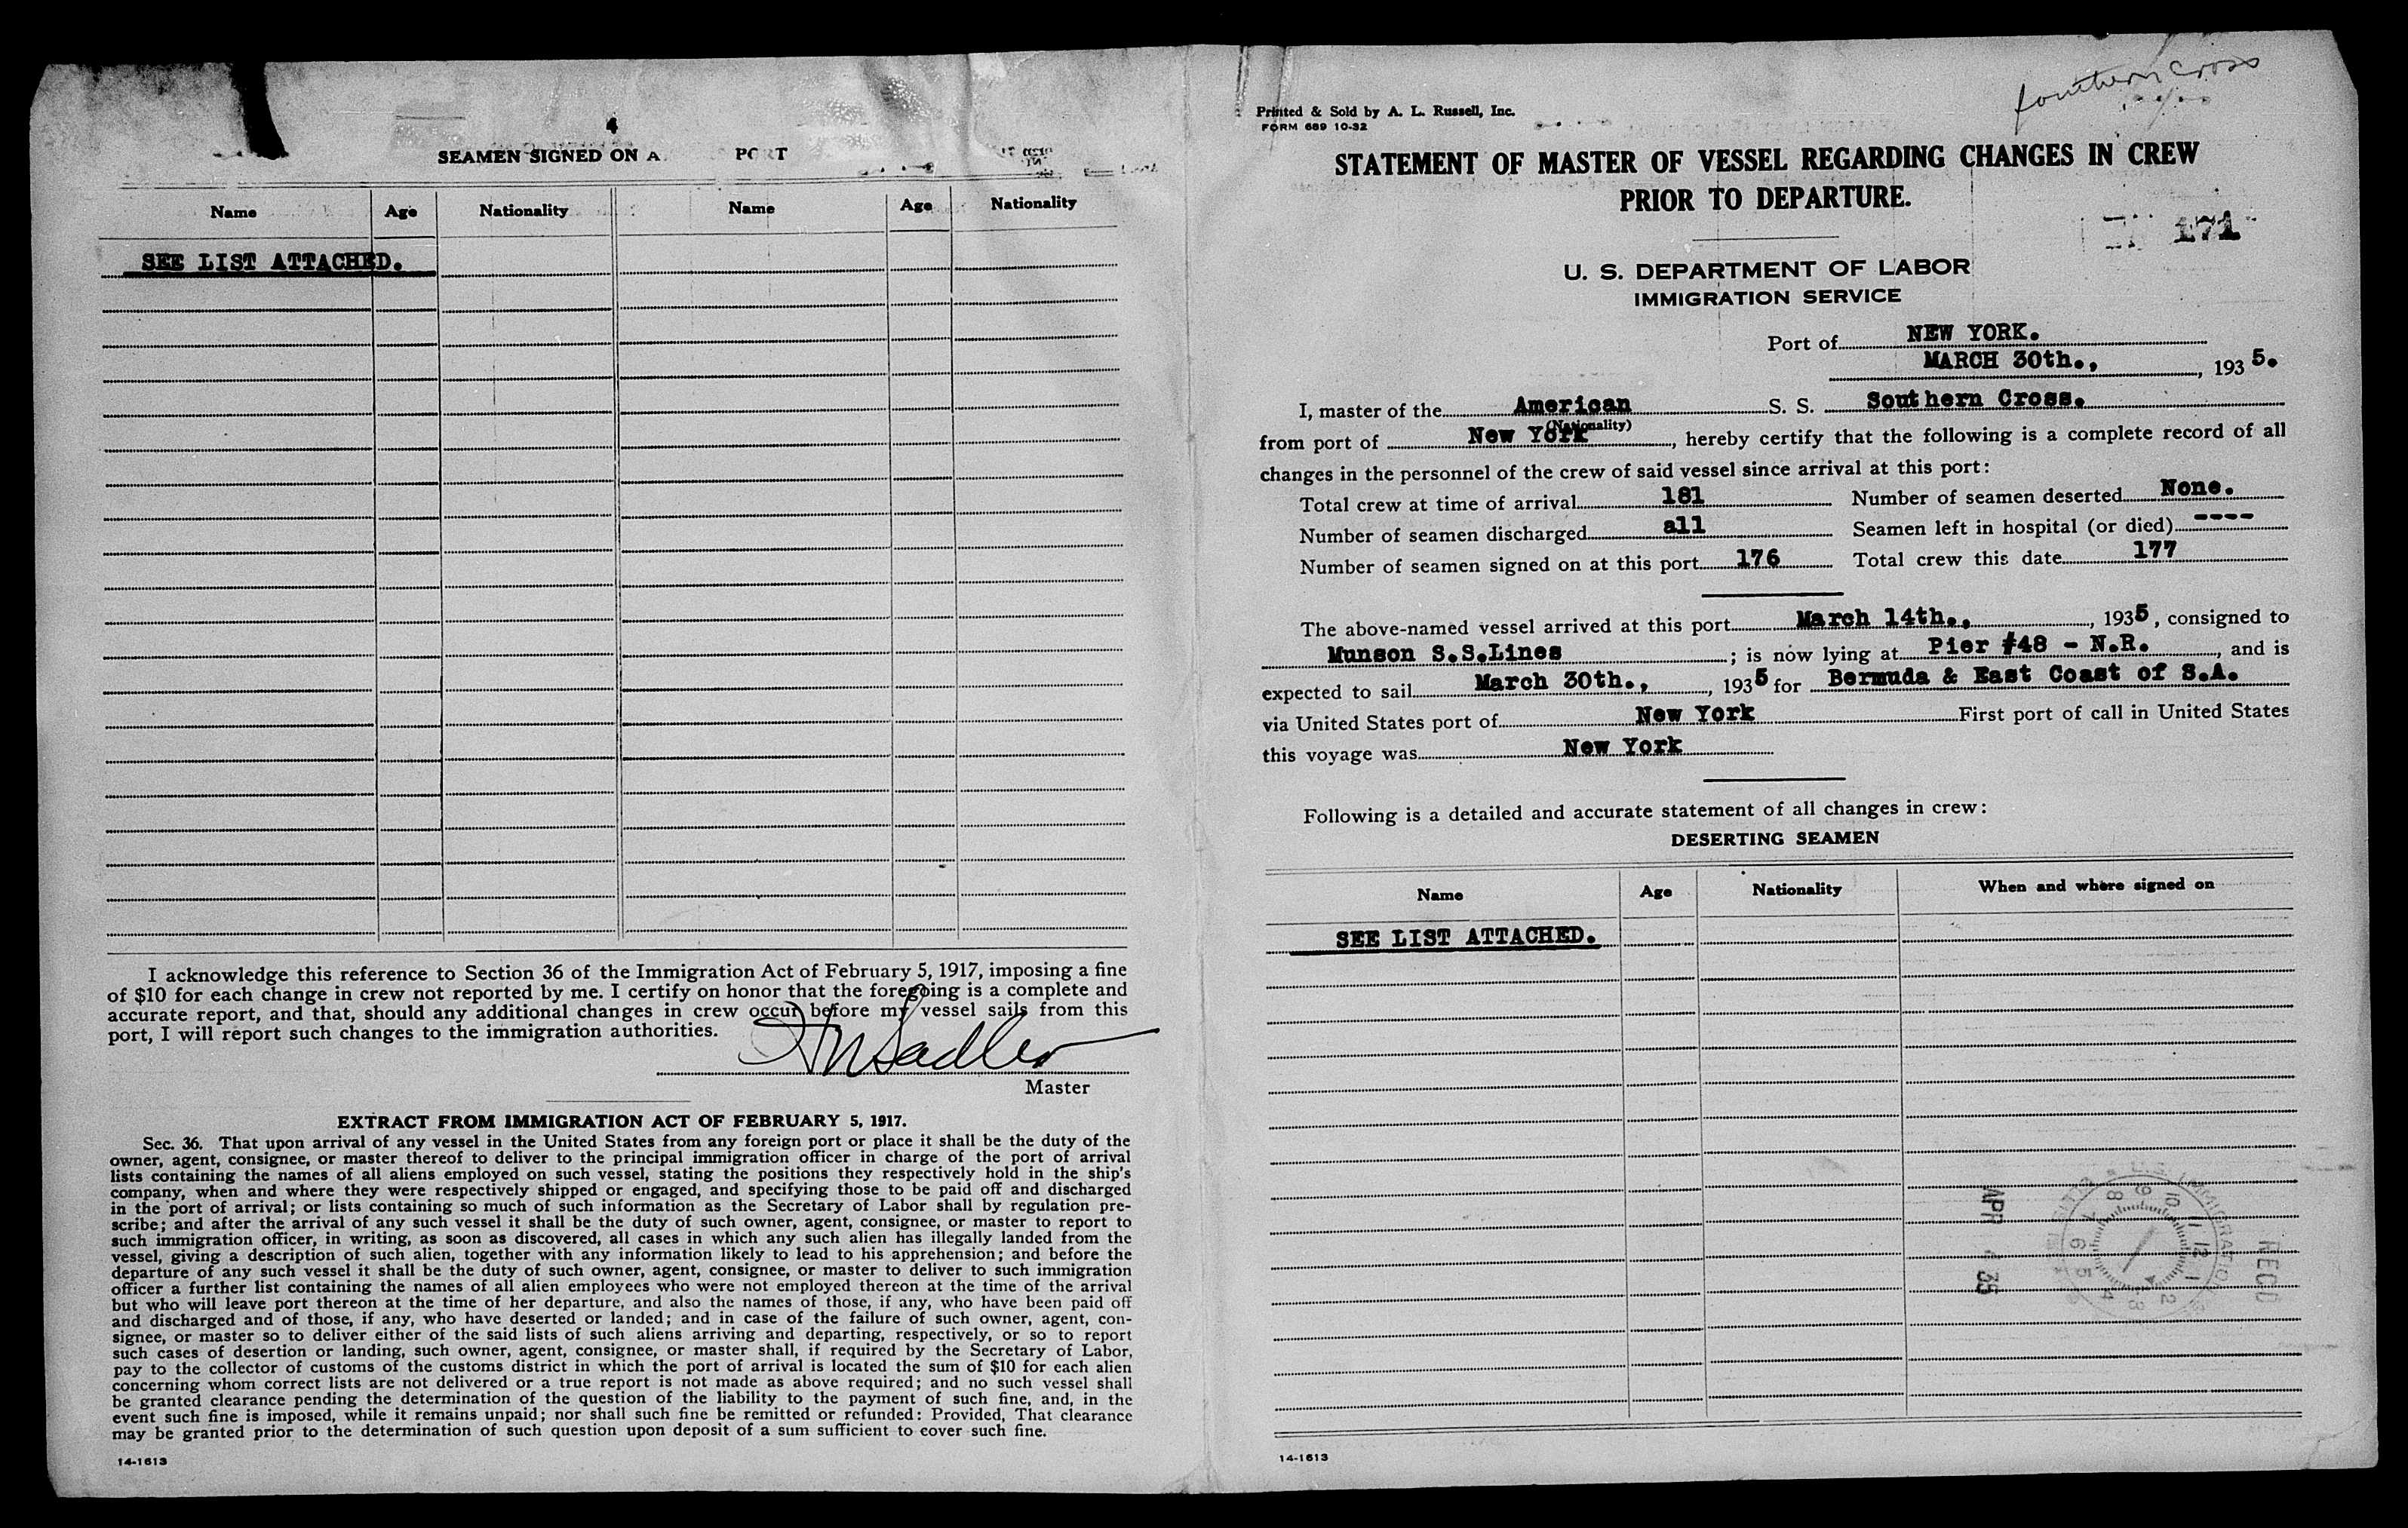 4
SEAMEN SIGNED ON A PORT
Name Age Nationality Name Age Nationality
SEE LIST ATTACHED.
I acknowledge this reference to Section 36 of the Immigration Act of February 5, 1917, imposing a fine
of $10 for each change in crew not reported by me. I certify on honor that the foregoing is a complete and
accurate report, and that, should any additional changes in crew occur before my vessel sails from this
port, I will report such changes to the immigration authorities.
Sadler
Master
EXTRACT FROM IMMIGRATION ACT OF FEBRUARY 5, 1917.
Sec. 36. That upon arrival of any vessel in the United States from any foreign port or place it shall be the duty of the
owner, agent, consignee, or master thereof to deliver to the principal immigration officer in charge of the port of arrival
lists containing the names of all aliens employed on such vessel, stating the positions they respectively hold in the ship's
company, when and where they were respectively shipped or engaged, and specifying those to be paid off and discharged
in the port of arrival; or lists containing so much of such information as the Secretary of Labor shall by regulation pre-
scribe; and after the arrival of any such vessel it shall be the duty of such owner, agent, consignee, or master to report to
such immigration officer, in writing, as soon as discovered, all cases in which any such alien has illegally landed from the
vessel, giving a description of such alien, together with any information likely to lead to his apprehension; and before the
departure of any such vessel it shall be the duty of such owner, agent, consignee, or master to deliver to such immigration
officer a further list containing the names of all alien employees who were not employed thereon at the time of the arrival
but who will leave port thereon at the time of her departure, and also the names of those, if any, who have been paid off
and discharged and of those, if any, who have deserted or landed; and in case of the failure of such owner, agent, con-
signee, or master so to deliver either of the said lists of such aliens arriving and departing, respectively, or so to report
such cases of desertion or landing, such owner, agent, consignee, or master shall, if required by the Secretary of Labor,
pay to the collector of customs of the customs district in which the port of arrival is located the sum of $10 for each alien
concerning whom correct lists are not delivered or a true report is not made as above required; and no such vessel shall
be granted clearance pending the determination of the question of the liability to the payment of such fine, and, in the
event such fine is imposed, while it remains unpaid; nor shall such fine be remitted or refunded: Provided, That clearance
may be granted prior to the determination of such question upon deposit of a sum sufficient to cover such fine.
14-1613
Southern Cross
Printed & Sold by A. L. Russell, Inc.
FORM 689 10-32
STATEMENT OF MASTER OF VESSEL REGARDING CHANGES IN CREW
PRIOR TO DEPARTURE.
171
U. S. DEPARTMENT OF LABOR
IMMIGRATION SERVICE
Port of NEW YORK.
MARCH 30th., , 1935.
I, master of the American S. S. Southern Cross.
(Nationality)
from port of New York , hereby certify that the following is a complete record of all
changes in the personnel of the crew of said vessel since arrival at this port:
Total crew at time of arrival 181 Number of seamen deserted None.
Number of seamen discharged all Seamen left in hospital (or died) ----
Number of seamen signed on at this port 176 Total crew this date 177
The above-named vessel arrived at this port March 14th., , 1935, consigned to
Munson S.S.Lines ; is now lying at Pier #48 - N.R. , and is
expected to sail March 30th., , 1935 for Bermuda & East Coast of S.A.
via United States port of New York First port of call in United States
this voyage was New York
Following is a detailed and accurate statement of all changes in crew:
DESERTING SEAMEN
Name Age Nationality When and where signed on
SEE LIST ATTACHED.
APR 4 35
RECD
IMMIGRATION
14-1613